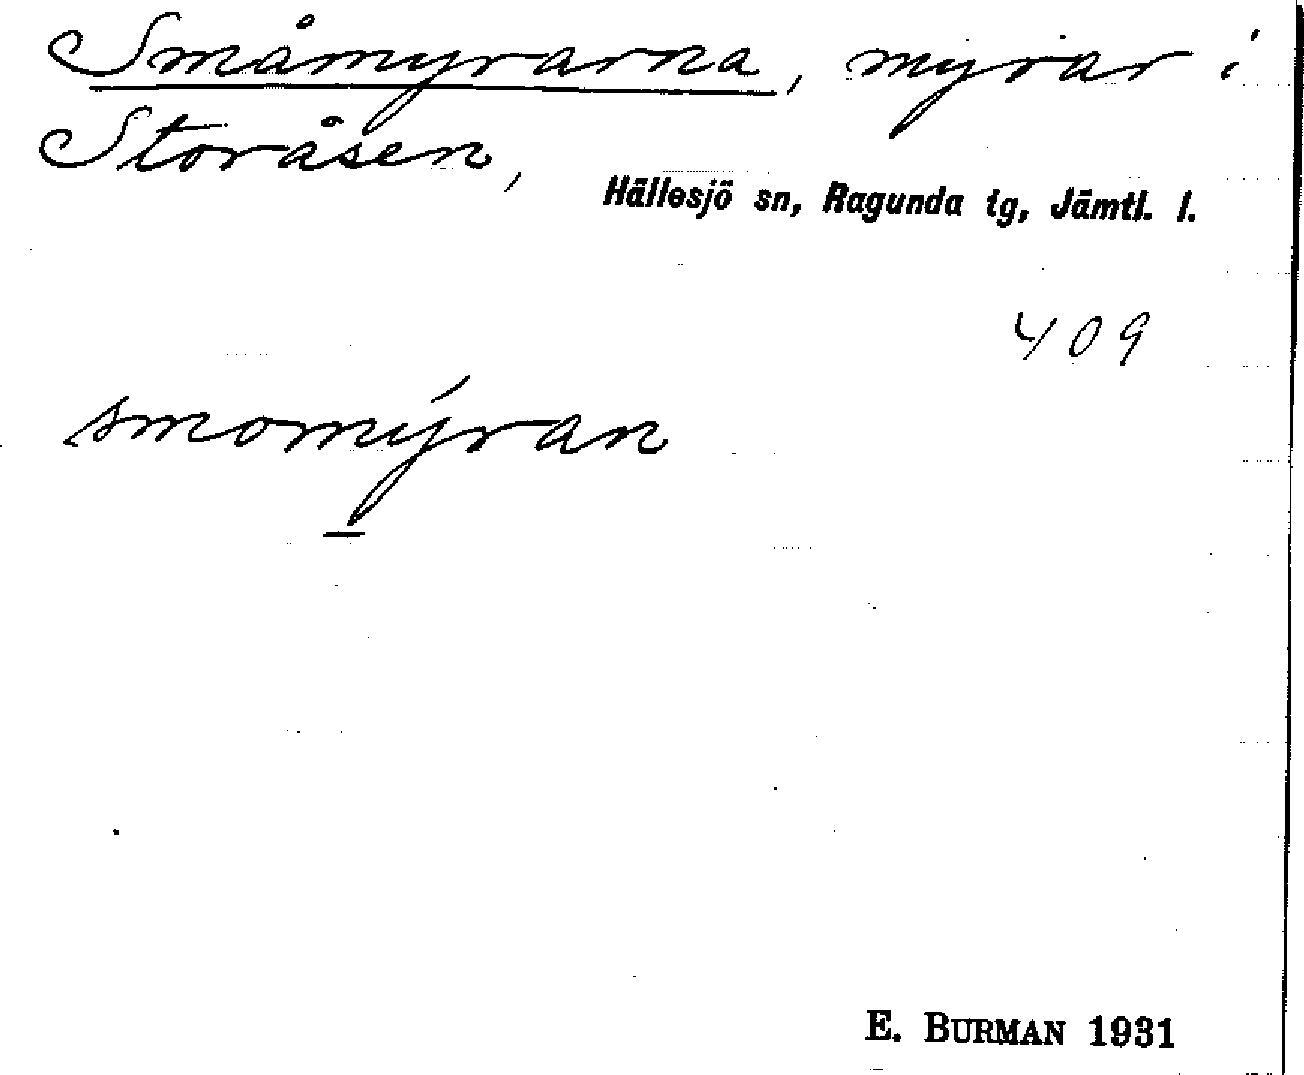 Småmyrarna, myrar i
Storåsen,
Hällesjö sn, Ragunda tg, Jämtl. l.
409
smomýran
E. BURMAN 1931